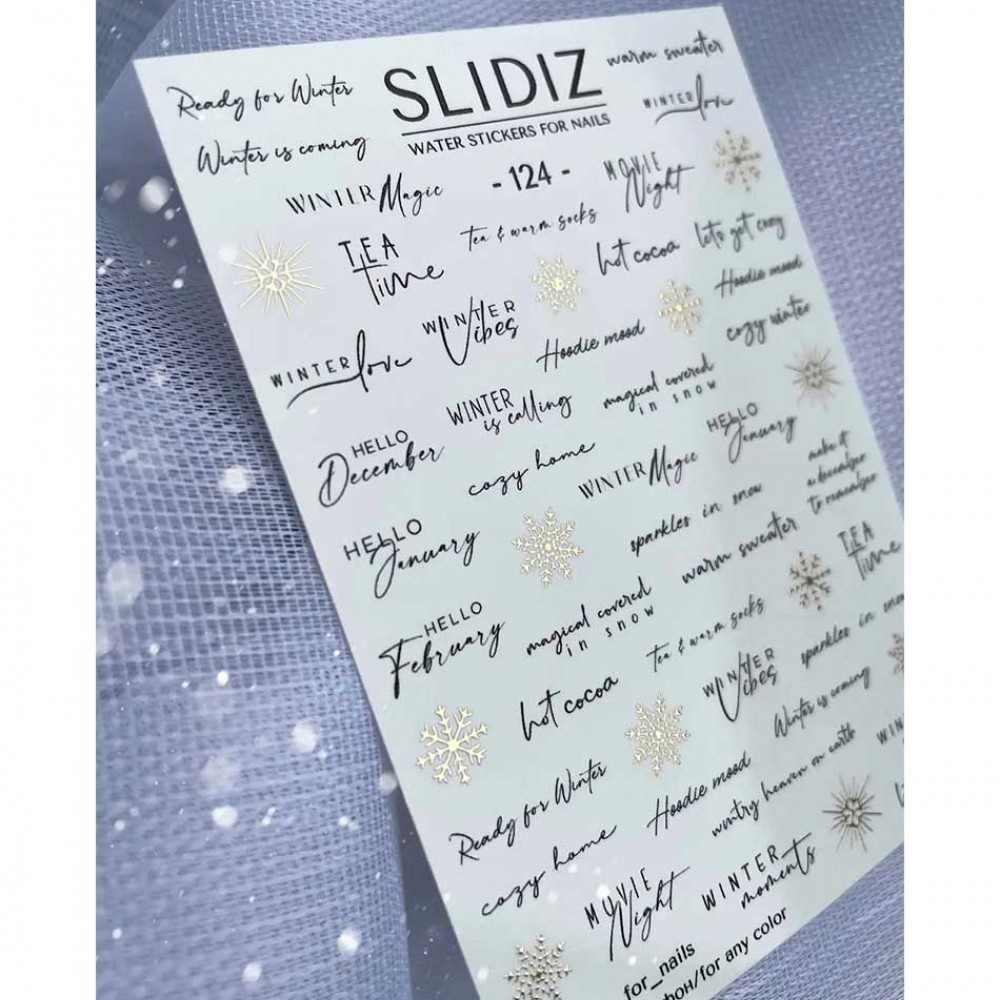 Ready for Winter
SLIDIZ
warm sweater
WATER STICKERS FOR NAILS
WINTER love
Winter is coming
WINTER Magic
- 124 -
MOVIE
Night
TEA
Time
tea & warm socks
hot cocoa
lets get cozy
Hoodie mood
WINTER love
WINTER
Vibes
Hoodie mood
cozy winter
HELLO
December
WINTER
is calling
magical covered
in snow
HELLO
January
cozy home
WINTER Magic
make it
a december
to remember
HELLO
January
sparkles in snow
warm sweater
TEA
Time
HELLO
February
magical covered
in snow
tea & warm socks
sparkles in snow
hot cocoa
WINTER
Vibes
Winter is coming
Ready for Winter
Hoodie mood
wintry heaven on earth
cozy home
MOVIE
Night
WINTER
moments
for_nails
/for any color